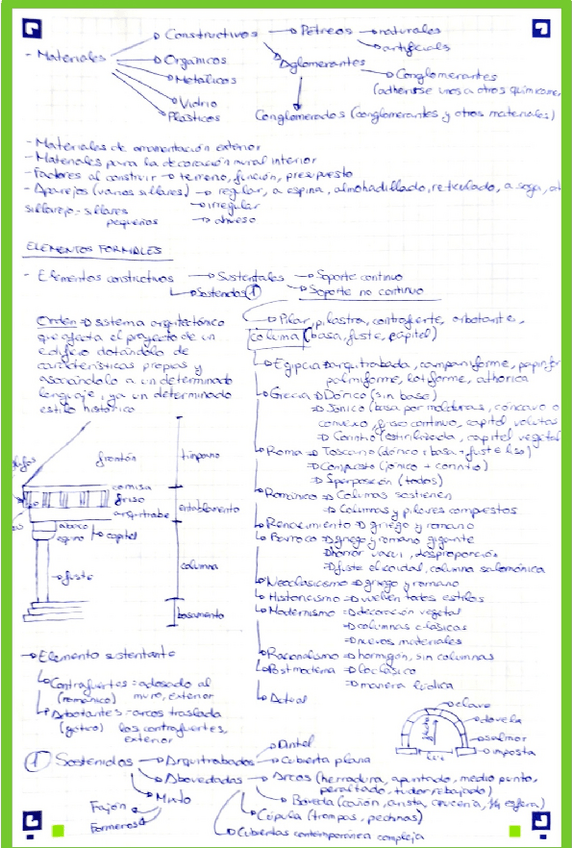 → Constructivos → Pétreos → naturales
→ artificiales
- Materiales → Orgánicos → Aglomerantes
→ Metálicos → Conglomerantes
(adherirse unos a otros químicamen
→ Vidrio
Plásticos Conglomerados (conglomerantes y otros materiales)
- Materiales de ornamentación exterior
- Materiales para la decoración mural interior
- Factores al construir → terreno, función, presupuesto
- Aparejos (varios sillares) → regular, a espina, almohadillado, reticulado, a soga,
→ irregular
sillarejo = sillares
pequeños
ELEMENTOS FORMALES
- Elementos constructivos → Sustentales → Soporte continuo
→ Sostenidos ① → Soporte no continuo
Orden → sistema arquitectónico
que afecta el proyecto de un
edificio dotándolo de
características propias y
asociándolo a un determinado
lenguaje, y a un determinado
estilo histórico
→ Pilar, pilastra, contrafuerte, arbotante,
columna (basa, fuste, capitel)
→ Egipcia → arquitrabada, campaniforme,
palmiforme, lotiforme, athórica
→ Grecia → Dórico (sin basa)
→ Jónico (basa por molduras, cóncavo o
convexo, friso continuo, capitel volutas
→ Corintio (estilizado, capitel vegetal
→ Roma → Toscano (dórico + basa + fuste liso)
→ Compuesto (jónico + corintio)
→ Superposición (todos)
→ Románico → Columnas sostienen
→ Columnas y pilares compuestos
→ Renacimiento → griego y romano
→ Barroco → griego y romano gigante
→ horror vacui, desproporción
→ fuste helicoidal, columna salomónica
→ Neoclasicismo → griego y romano
→ Historicismo → vuelven todos estilos
→ Modernismo → decoración vegetal
→ columnas clásicas
→ nuevos materiales
→ Racionalismo → hormigón, sin columnas
→ Postmoderna → lo clásico
→ manera lúdica
→ Actual
frontón
tímpano
cornisa
friso
arquitrabe
entablamento
ábaco
equino
→ capitel
→ fuste
columna
basamento
→ Elemento sustentante
→ Contrafuertes = adosado al
(románico) muro, exterior
→ Arbotantes = arcos traslada
(gótico) los contrafuertes,
exterior
→ clave
→ dovela
→ salmer
→ imposta
flecha
luz
① Sostenidos → Arquitrabados → Dintel
→ Cubierta plana
→ Abovedadas → Arcos (herradura, apuntado, medio punto,
peraltado, tudor rebajado)
→ Mixto
→ Bóveda (cañón, arista, crucería, 1/4 esfera)
Fajón
Formeros
→ Cúpula (trompas, pechinas)
→ Cubiertas contemporánea compleja